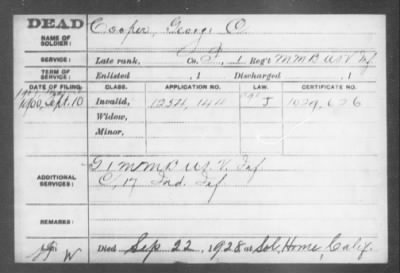 DEAD
NAME OF SOLDIER:
Cooper, George O.
SERVICE:
Late rank, Co. I, 1 Reg't M M B U S V Inf
TERM OF SERVICE:
Enlisted , 1 Discharged , 1
DATE OF FILING. CLASS. APPLICATION NO. LAW. CERTIFICATE NO.
Sept. 10 Invalid, 1234,144 J 1029,626
Widow,
Minor,
ADDITIONAL SERVICES:
I 1 M M B U S. V. Inf
C, 17 Ind. Inf.
REMARKS:
Died Sep 22, 1928 at Sol. Home, Calif.